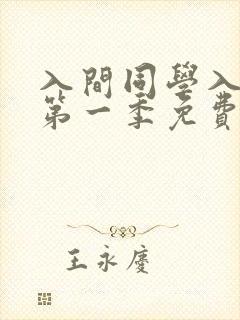 入間同學入
第一季免費
王永慶